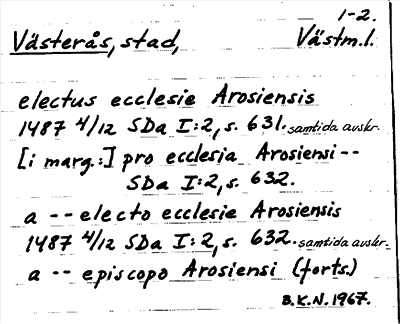 1-2.
Västerås, stad, Västm.l.
electus ecclesie Arosiensis
1487 4/12 SDa I:2, s. 631. samtida avskr.
[i marg.:] pro ecclesia Arosiensi --
SDa I:2, s. 632.
a -- electo ecclesie Arosiensis
1487 4/12 SDa I:2, s. 632. samtida avskr.
a -- episcopo Arosiensi (forts.)
B.K.N. 1967.